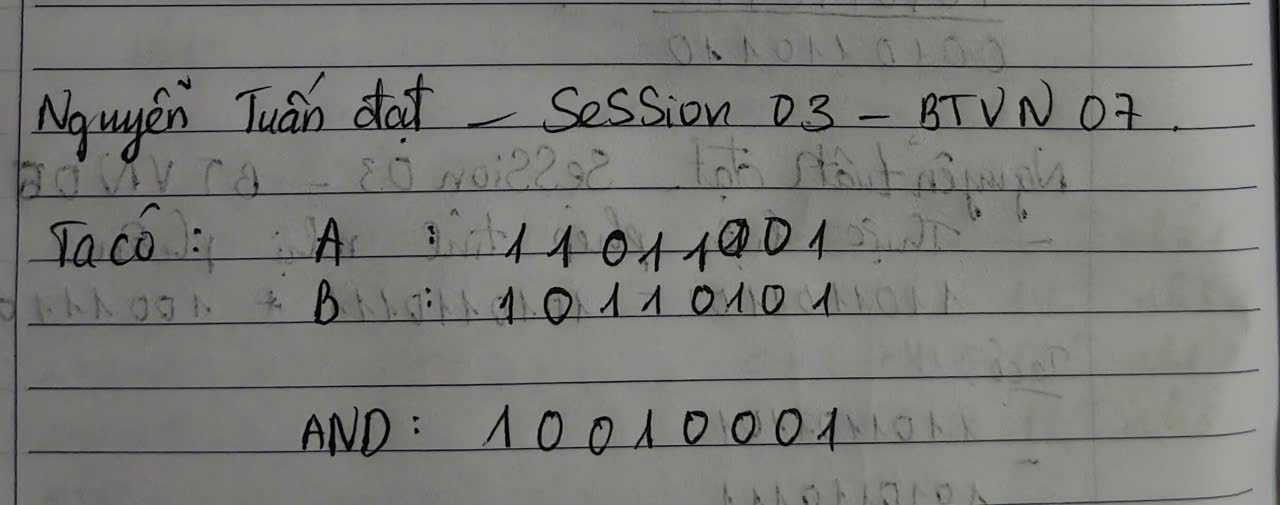 Nguyễn Tuấn đạt - Session 03 - BTVN 07.
Ta có: A : 11011001
B : 10110101
AND: 10010001